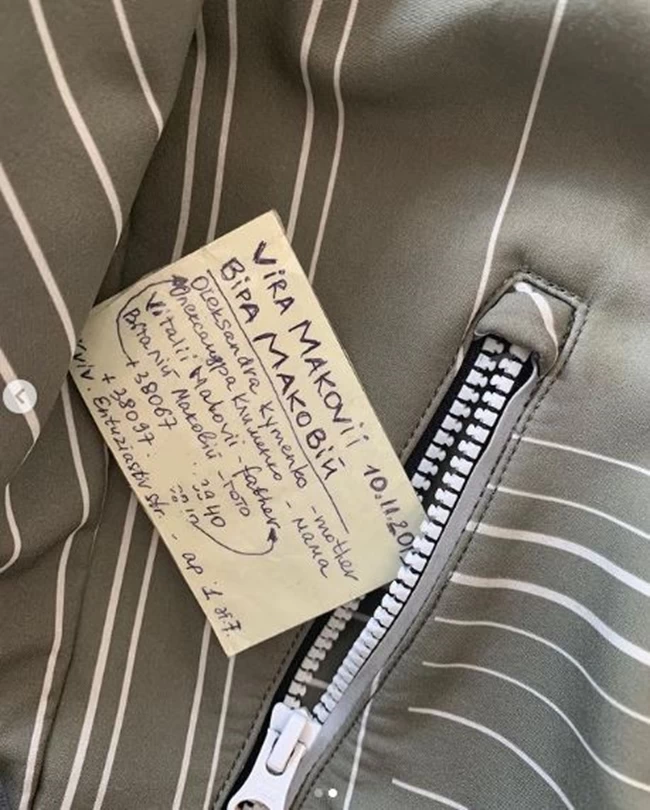 VIRA MAKOVII 10.11.20
ВІРА МАКОВІЙ
Oleksandra Kymenko - mother
Олександра Клименко - мама
Vitalii Makovii - father
Віталій Маковій - тато
+38067 40
+38097
Entuziastiv str. - ap. 1